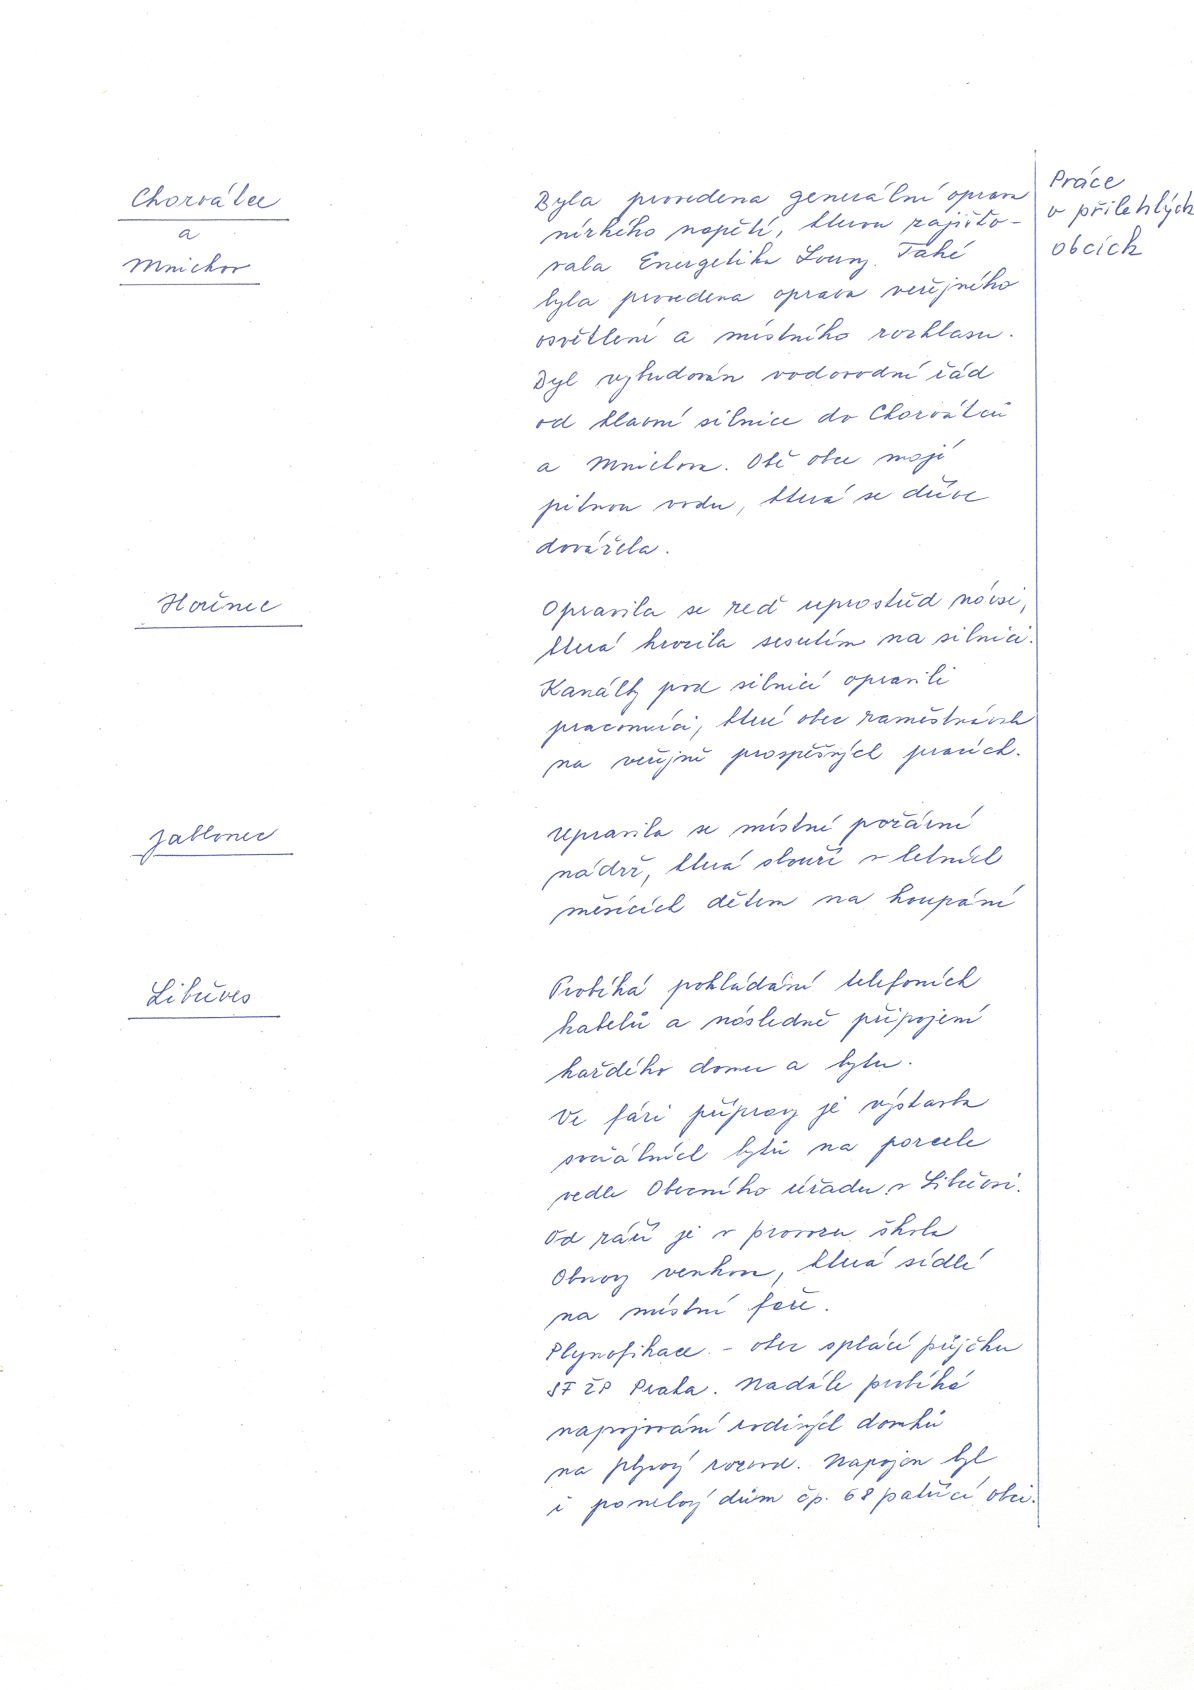 Práce
v přilehlých
obcích
Chorvátce
a
Mnichov
Byla provedena generální oprava
nízkého napětí, kterou zajišťo-
vala Energetika Louny. Také
byla provedena oprava veřejného
osvětlení a místního rozhlasu.
Byl vybudován vodovodní řád
od hlavní silnice do Chorvátců
a Mnichova. Obě obce mají
pitnou vodu, která se dříve
dovážela.
Hořenec
Opravila se zeď uprostřed návsi,
která hrozila sesutím na silnici.
Kanálky pod silnicí opravili
pracovníci, které obec zaměstnávala
na veřejně prospěšných pracích.
Jablonec
Upravila se místní požární
nádrž, která slouží v letních
měsících dětem na koupání
Liběves
Probíhá pokládání telefoních
kabelů a následně připojení
každého domu a bytu.
Ve fázi přípravy je výstavba
sociálních bytů na parcele
vedle Obecního úřadu v Liběvsi.
Od září je v provozu škola
Obnovy venkova, která sídlí
na místní faře.
Plynofikace - obec splácí půjčku
SF ŽP Praha. Nadále probíhá
napojování rodiných domků
na plynový rozvod. Napojen byl
i panelový dům čp. 68 patřící obci.